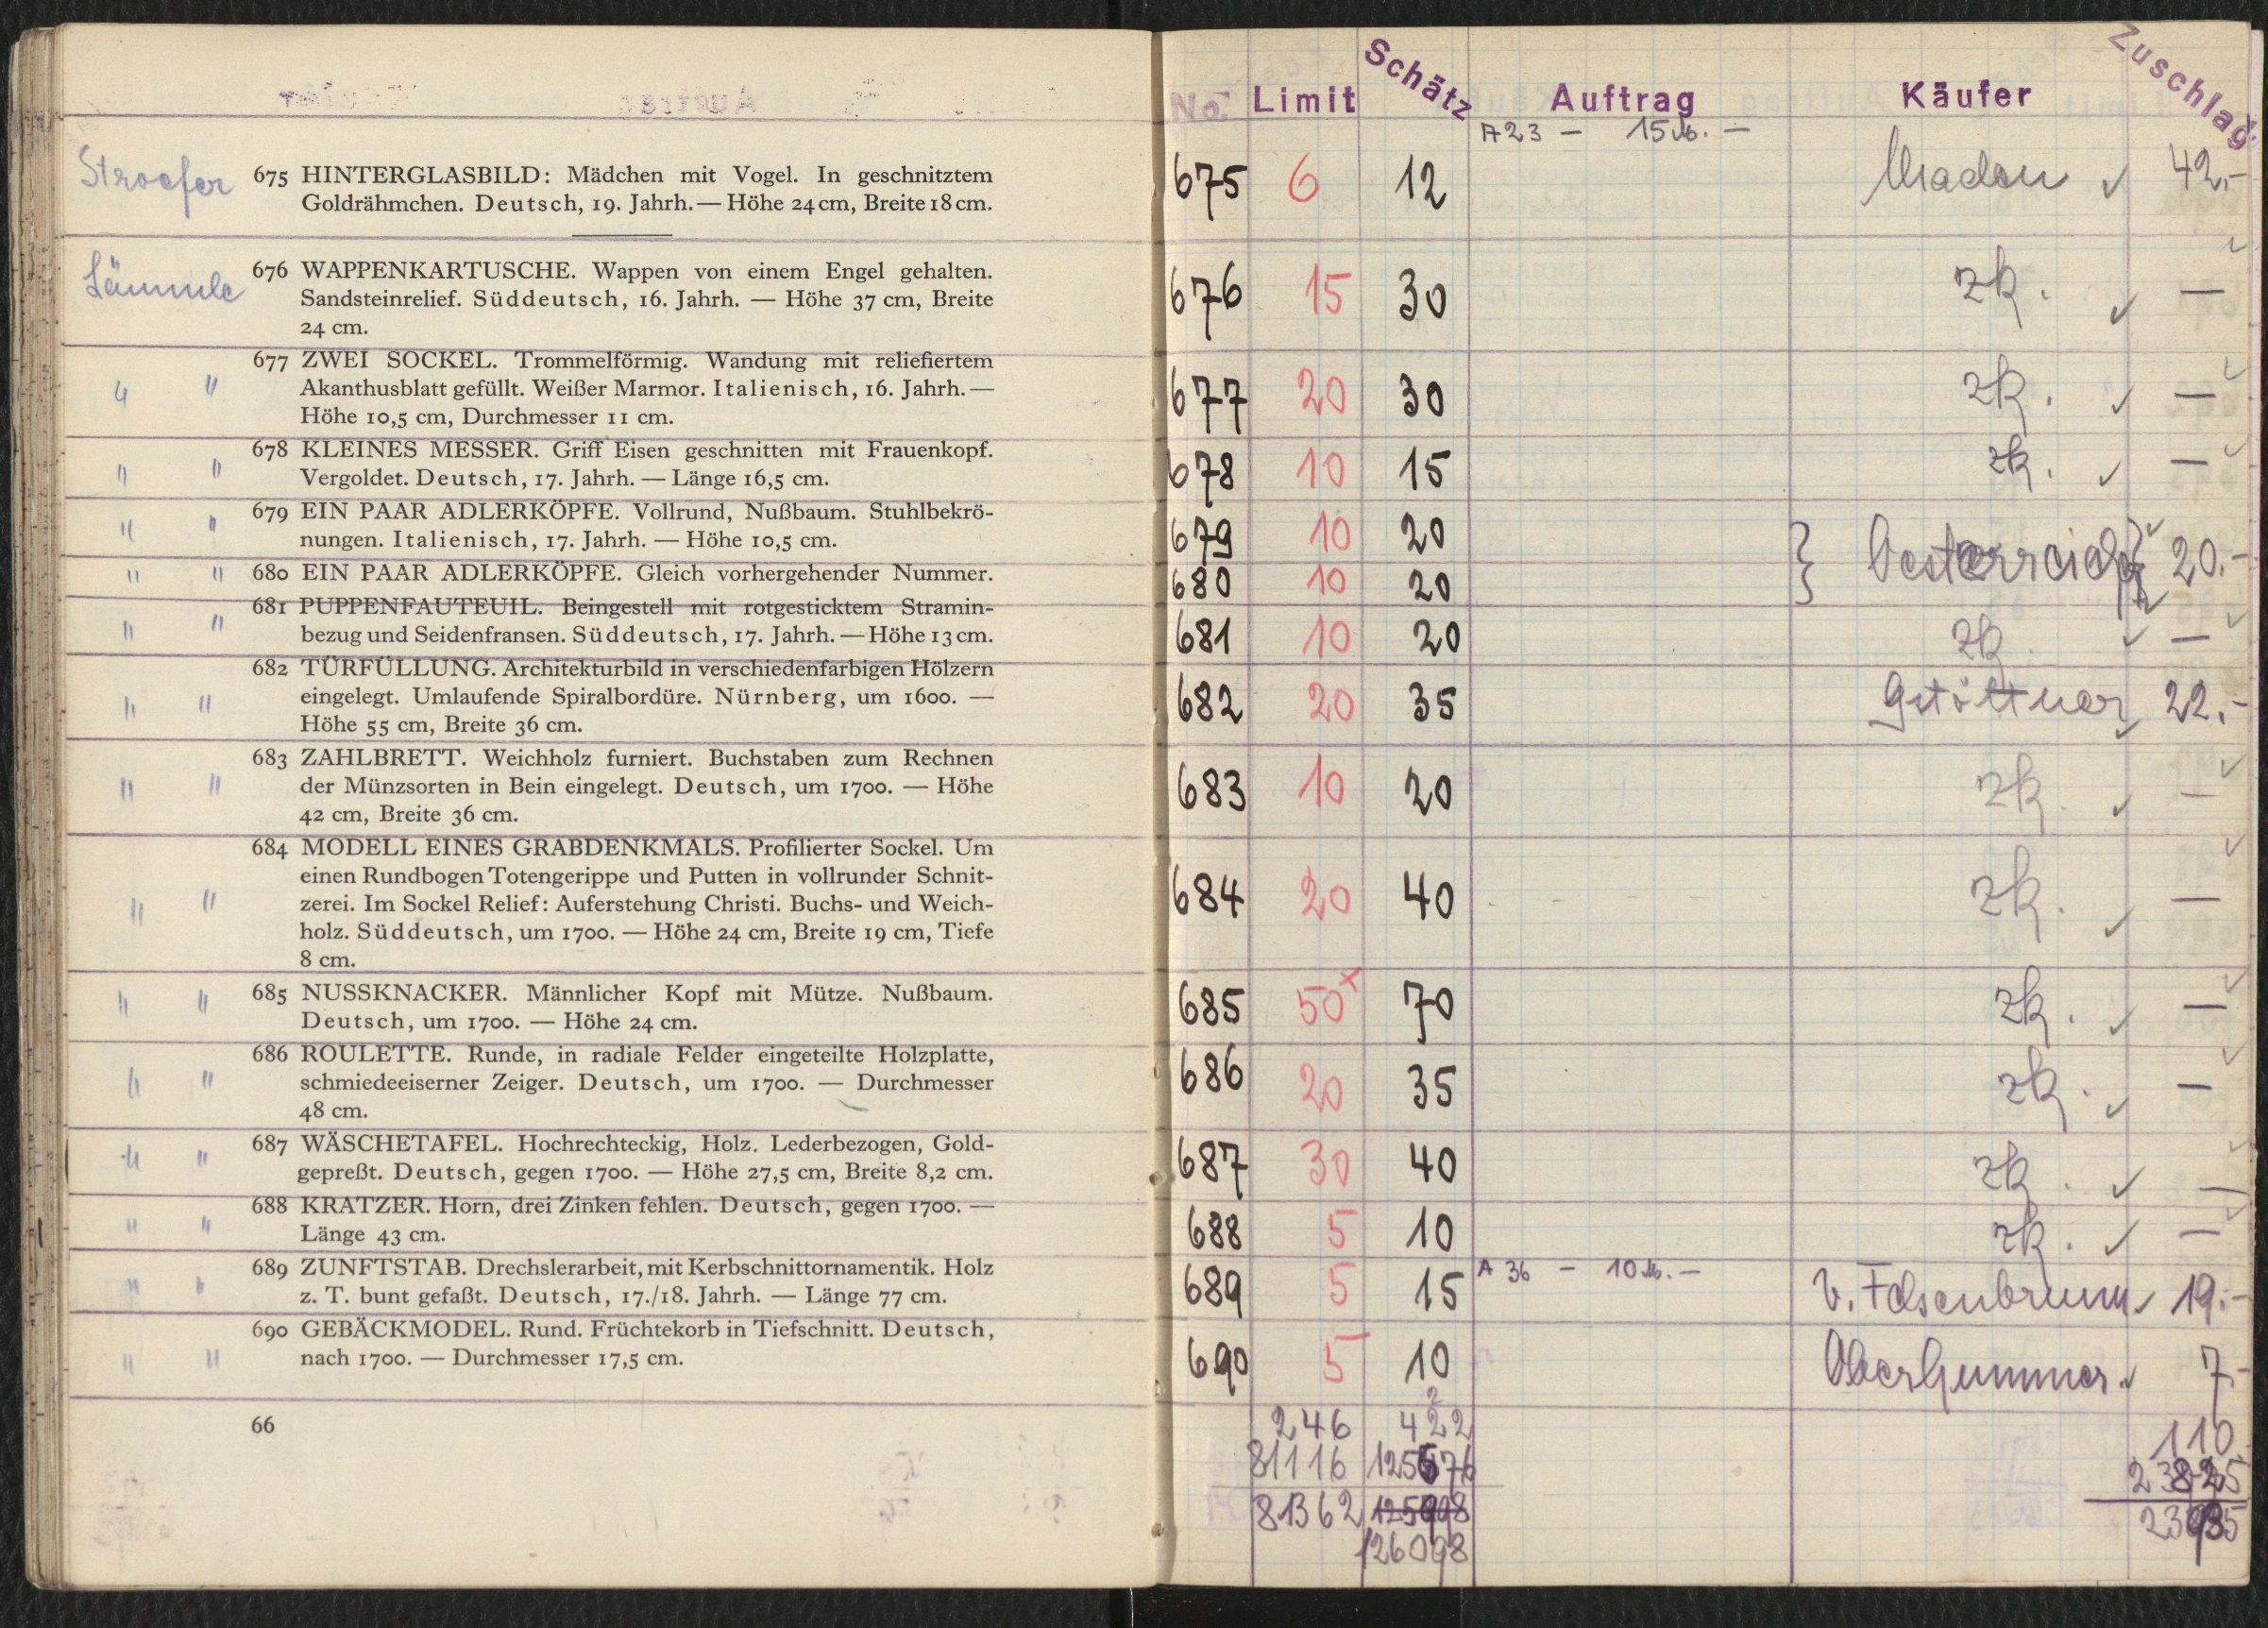 Stroefer
675 HINTERGLASBILD: Mädchen mit Vogel. In geschnitztem
Goldrähmchen. Deutsch, 19. Jahrh. — Höhe 24 cm, Breite 18 cm.
Lämmle
676 WAPPENKARTUSCHE. Wappen von einem Engel gehalten.
Sandsteinrelief. Süddeutsch, 16. Jahrh. — Höhe 37 cm, Breite
24 cm.
677 ZWEI SOCKEL. Trommelförmig. Wandung mit reliefiertem
" " Akanthusblatt gefüllt. Weißer Marmor. Italienisch, 16. Jahrh. —
Höhe 10,5 cm, Durchmesser 11 cm.
678 KLEINES MESSER. Griff Eisen geschnitten mit Frauenkopf.
" " Vergoldet. Deutsch, 17. Jahrh. — Länge 16,5 cm.
679 EIN PAAR ADLERKÖPFE. Vollrund, Nußbaum. Stuhlbekrö-
" " nungen. Italienisch, 17. Jahrh. — Höhe 10,5 cm.
" " 680 EIN PAAR ADLERKÖPFE. Gleich vorhergehender Nummer.
681 PUPPENFAUTEUIL. Beingestell mit rotgesticktem Stramin-
" " bezug und Seidenfransen. Süddeutsch, 17. Jahrh. — Höhe 13 cm.
682 TÜRFÜLLUNG. Architekturbild in verschiedenfarbigen Hölzern
" " eingelegt. Umlaufende Spiralbordüre. Nürnberg, um 1600. —
Höhe 55 cm, Breite 36 cm.
683 ZAHLBRETT. Weichholz furniert. Buchstaben zum Rechnen
" " der Münzsorten in Bein eingelegt. Deutsch, um 1700. — Höhe
42 cm, Breite 36 cm.
684 MODELL EINES GRABDENKMALS. Profilierter Sockel. Um
einen Rundbogen Totengerippe und Putten in vollrunder Schnit-
" " zerei. Im Sockel Relief: Auferstehung Christi. Buchs- und Weich-
holz. Süddeutsch, um 1700. — Höhe 24 cm, Breite 19 cm, Tiefe
8 cm.
" " 685 NUSSKNACKER. Männlicher Kopf mit Mütze. Nußbaum.
Deutsch, um 1700. — Höhe 24 cm.
686 ROULETTE. Runde, in radiale Felder eingeteilte Holzplatte,
" " schmiedeeiserner Zeiger. Deutsch, um 1700. — Durchmesser
48 cm.
687 WÄSCHETAFEL. Hochrechteckig, Holz. Lederbezogen, Gold-
" " gepreßt. Deutsch, gegen 1700. — Höhe 27,5 cm, Breite 8,2 cm.
688 KRATZER. Horn, drei Zinken fehlen. Deutsch, gegen 1700. —
" " Länge 43 cm.
689 ZUNFTSTAB. Drechslerarbeit, mit Kerbschnittornamentik. Holz
" " z. T. bunt gefaßt. Deutsch, 17./18. Jahrh. — Länge 77 cm.
690 GEBÄCKMODEL. Rund. Früchtekorb in Tiefschnitt. Deutsch,
" " nach 1700. — Durchmesser 17,5 cm.
66
No. Limit Schätz Auftrag Käufer Zuschlag
A 23 — 15 M. —
675 6 12 42.-
676 15 30 zk. —
677 20 30 zk. —
678 10 15 zk. —
679 10 20 } Oesterreich } 20.-
680 10 20
681 10 20 zk —
682 20 35 Gstöttner 22.-
683 10 20 zk. —
684 20 40 zk. —
685 50x 70 zk. —
686 20 35 zk. —
687 30 40 zk. —
688 5 10 zk. —
689 5 15 A 36 — 10 M. — v. Felsenbrunn 19.-
690 5 10 Oberhummer 7.-
246 422 110
81116 125676 23825
81362 125998 23935
126098